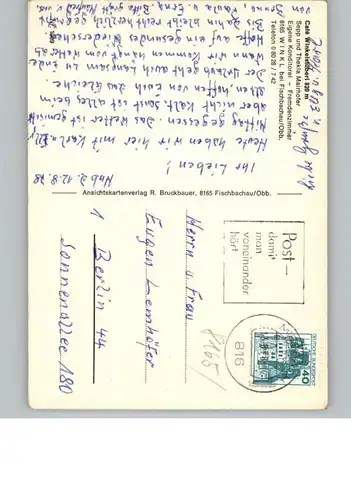 Café Winklstüberl 820 m
Sepp und Thekla Mairhofer
Eigene Konditorei – Fremdenzimmer
8165 WINKL bei Fischbachau/Obb.
Telefon 0 80 28 / 7 42
Ihr Lieben!
Heute haben wir hier mit Karls
Mittag gegessen. Das Wetter ist gemischt
aber nicht kalt. Sonst ist alles beim
alten, hoffen von Euch das Gleiche.
Der Urlaub geht auch langsam zu Ende
Wann wir kommen wissen
Hoffe auf ein gesundes Wiedersehen
Bis dahin bleibt recht herzlich gegrüßt
von Paula u. Erna, Bitte grüßt Manfred u.
Ansichtskartenverlag R. Bruckbauer, 8165 Fischbachau/Obb.
Post-
damit
man
voneinander
hört
816
DEUTSCHE BUNDESPOST
40
8165/
Herrn u. Frau
Eugen Lemhöfer
1 Berlin 44
Sonnenallee 180